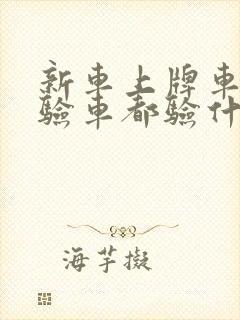 新車上牌車
驗車都驗什
海芋擬